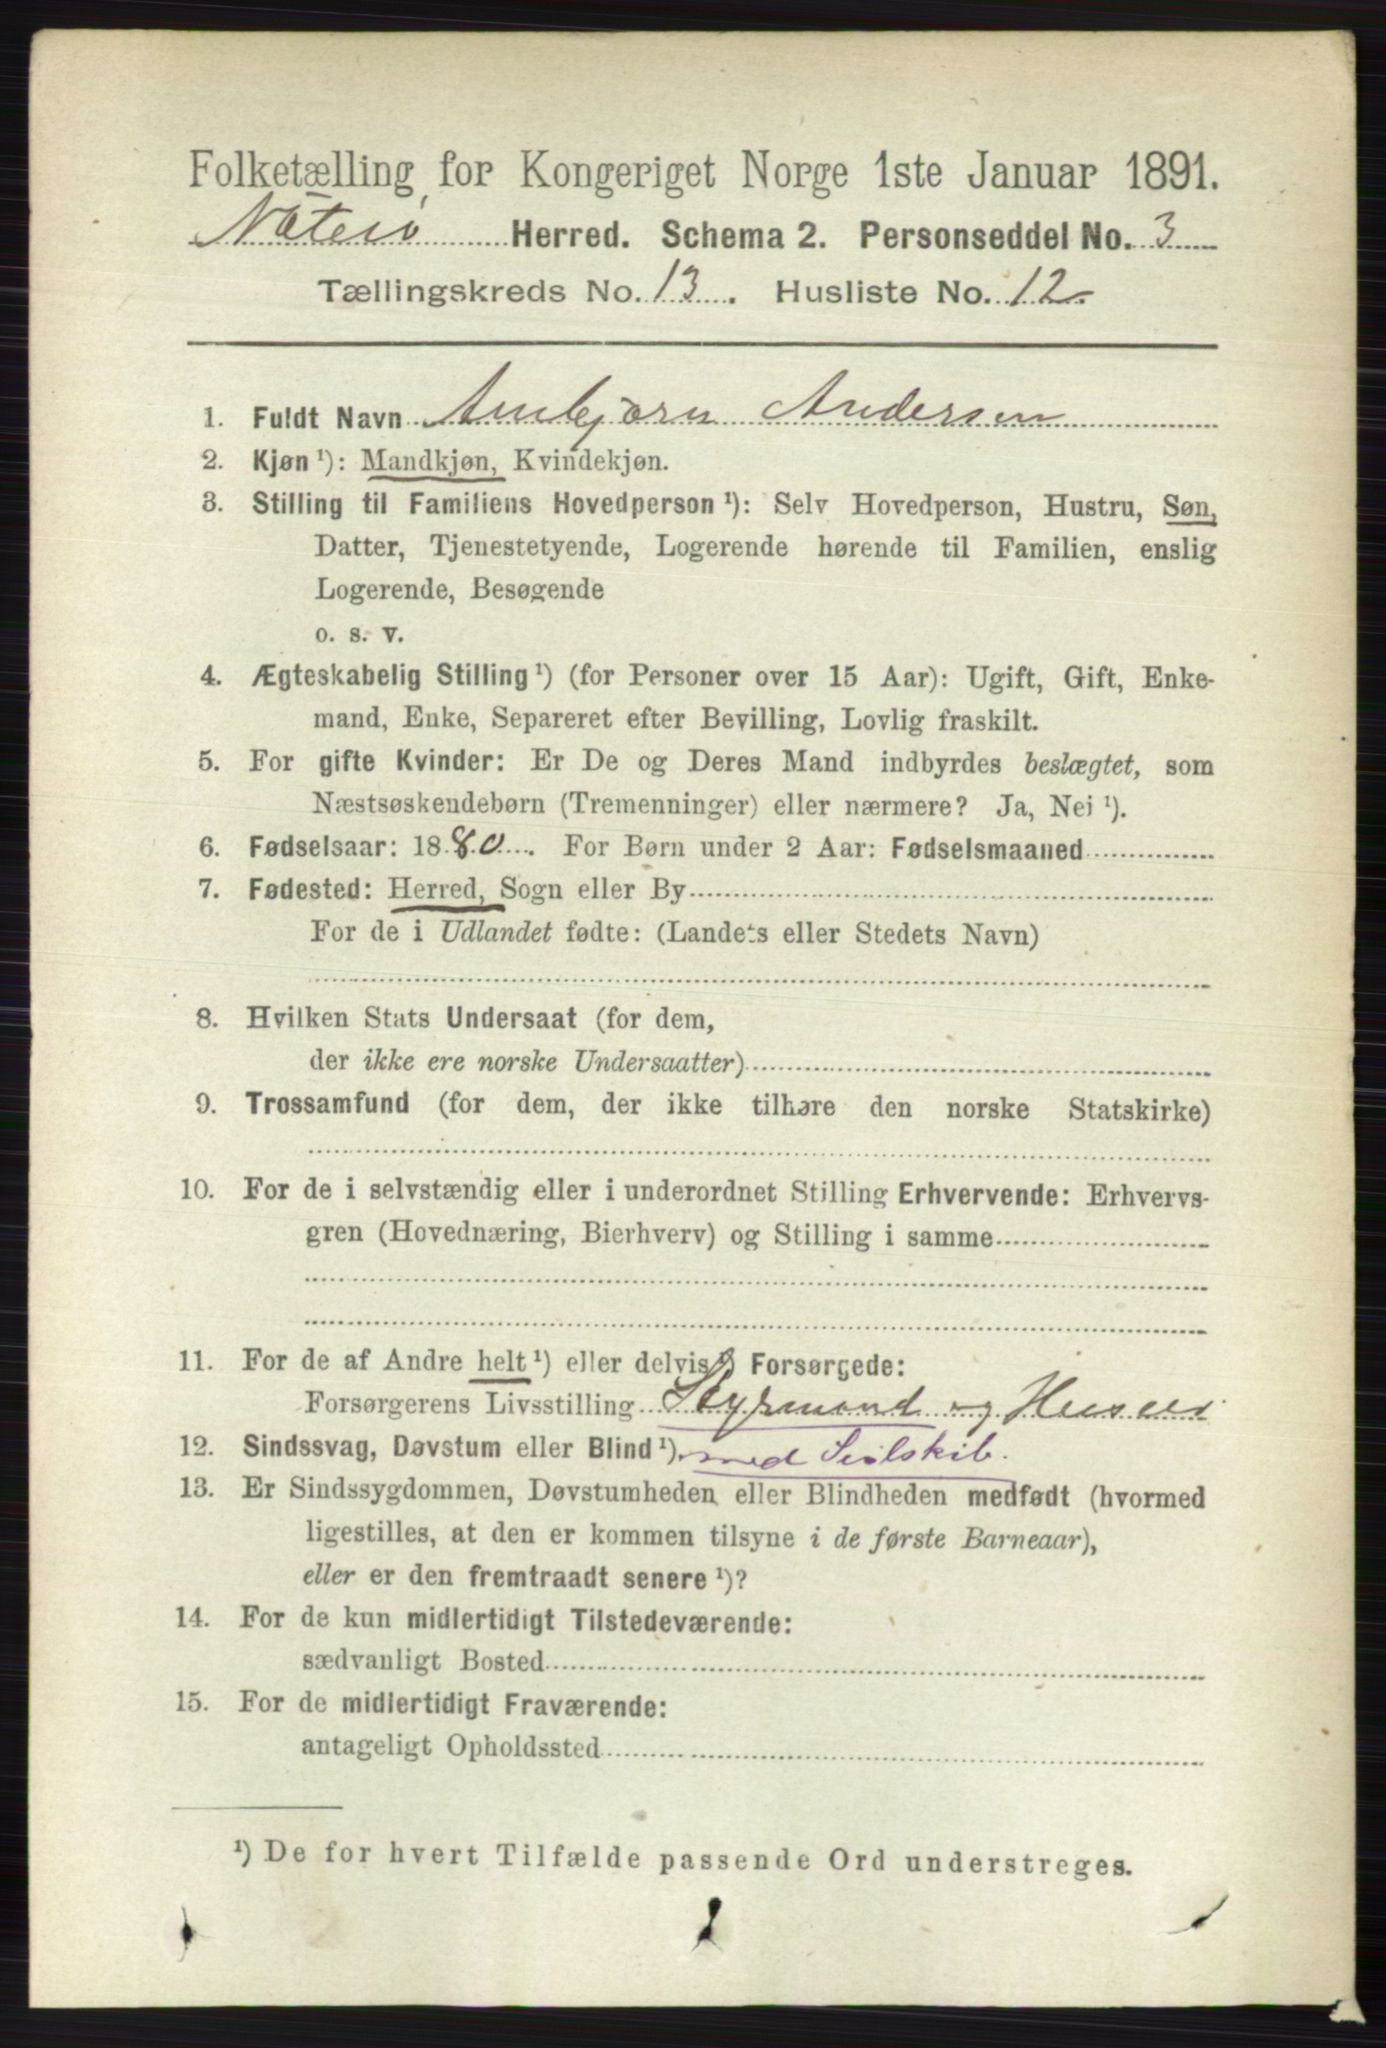 Folketælling for Kongeriget Norge 1ste Januar 1891.
Nøterø Herred. Schema 2. Personseddel No. 3
Tællingskreds No. 13. Husliste No. 12
1. Fuldt Navn Arnbjørn Andersen
2. Kjøn ¹): Mandkjøn, Kvindekjøn.
3. Stilling til Familiens Hovedperson ¹): Selv Hovedperson, Hustru, Søn,
Datter, Tjenestetyende, Logerende hørende til Familien, enslig
Logerende, Besøgende
o. s. v.
4. Ægteskabelig Stilling ¹) (for Personer over 15 Aar): Ugift, Gift, Enke-
mand, Enke, Separeret efter Bevilling, Lovlig fraskilt.
5. For gifte Kvinder: Er De og Deres Mand indbyrdes beslægtet, som
Næstsøskendebørn (Tremenninger) eller nærmere? Ja, Nei ¹).
6. Fødselsaar: 1880. For Børn under 2 Aar: Fødselsmaaned
7. Fødested: Herred, Sogn eller By
For de i Udlandet fødte: (Landets eller Stedets Navn)
8. Hvilken Stats Undersaat (for dem,
der ikke ere norske Undersaatter)
9. Trossamfund (for dem, der ikke tilhøre den norske Statskirke)
10. For de i selvstændig eller i underordnet Stilling Erhvervende: Erhvervs-
gren (Hovednæring, Bierhverv) og Stilling i samme
11. For de af Andre helt ¹) eller delvis ¹) Forsørgede:
Forsørgerens Livsstilling Styrmand og Huseier
12. Sindssvag, Døvstum eller Blind ¹). med Seilskib.
13. Er Sindssygdommen, Døvstumheden eller Blindheden medfødt (hvormed
ligestilles, at den er kommen tilsyne i de første Barneaar),
eller er den fremtraadt senere ¹)?
14. For de kun midlertidigt Tilstedeværende:
sædvanligt Bosted
15. For de midlertidigt Fraværende:
antageligt Opholdssted
¹) De for hvert Tilfælde passende Ord understreges.